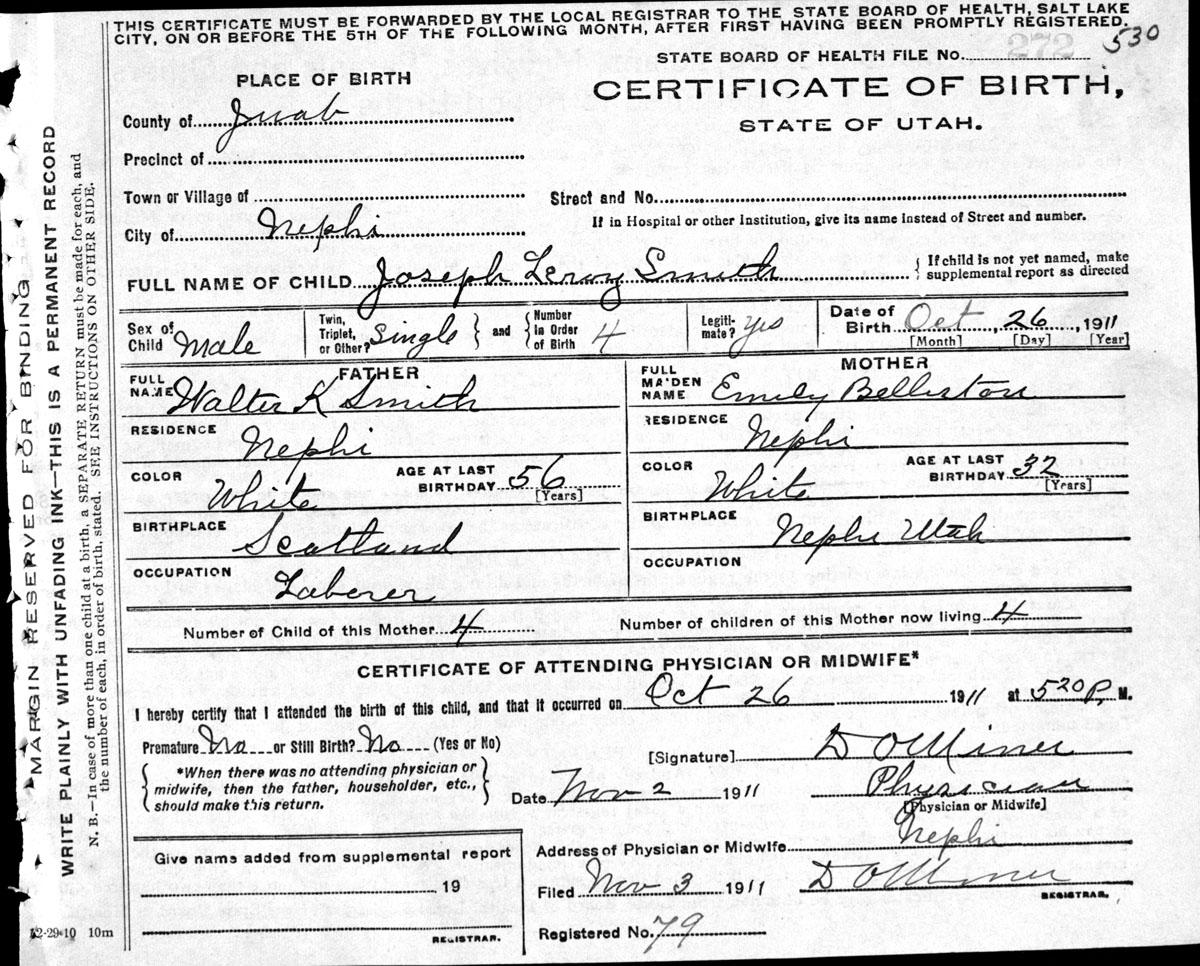 THIS CERTIFICATE MUST BE FORWARDED BY THE LOCAL REGISTRAR TO THE STATE BOARD OF HEALTH, SALT LAKE
CITY, ON OR BEFORE THE 5TH OF THE FOLLOWING MONTH, AFTER FIRST HAVING BEEN PROMPTLY REGISTERED.
272 530
STATE BOARD OF HEALTH FILE No.
PLACE OF BIRTH
CERTIFICATE OF BIRTH,
STATE OF UTAH.
County of Juab
Precinct of
Town or Village of
Street and No.
City of Nephi
If in Hospital or other Institution, give its name instead of Street and number.
FULL NAME OF CHILD Joseph Leroy Smith { If child is not yet named, make
supplemental report as directed
Sex of Child Male
Twin, Triplet, or Other? Single } and { Number in Order of Birth 4
Legiti-mate? Yes
Date of Birth Oct, 26, 1911
[Month] [Day] [Year]
FATHER
FULL NAME Walter K Smith
RESIDENCE Nephi
COLOR White
AGE AT LAST BIRTHDAY 56
[Years]
BIRTHPLACE Scotland
OCCUPATION Laberer
MOTHER
FULL MAIDEN NAME Emily Bellerton
RESIDENCE Nephi
COLOR White
AGE AT LAST BIRTHDAY 32
[Years]
BIRTHPLACE Nephi Utah
OCCUPATION
Number of Child of this Mother 4
Number of children of this Mother now living 4
CERTIFICATE OF ATTENDING PHYSICIAN OR MIDWIFE*
I hereby certify that I attended the birth of this child, and that it occurred on Oct 26 1911 at 5 20 P. M.
Premature No or Still Birth? No (Yes or No)
[Signature] D O Miner
{ *When there was no attending physician or
midwife, then the father, householder, etc.,
should make this return. }
Date Nov 2 1911
Physician
[Physician or Midwife]
Give name added from supplemental report
19
REGISTRAR.
Address of Physician or Midwife Nephi
Filed Nov 3 1911 D O Miner
REGISTRAR.
Registered No. 79
12-29-10 10m
MARGIN RESERVED FOR BINDING
WRITE PLAINLY WITH UNFADING INK—THIS IS A PERMANENT RECORD
N. B.—In case of more than one child at a birth, a SEPARATE RETURN must be made for each, and
the number of each, in order of birth, stated. SEE INSTRUCTIONS ON OTHER SIDE.